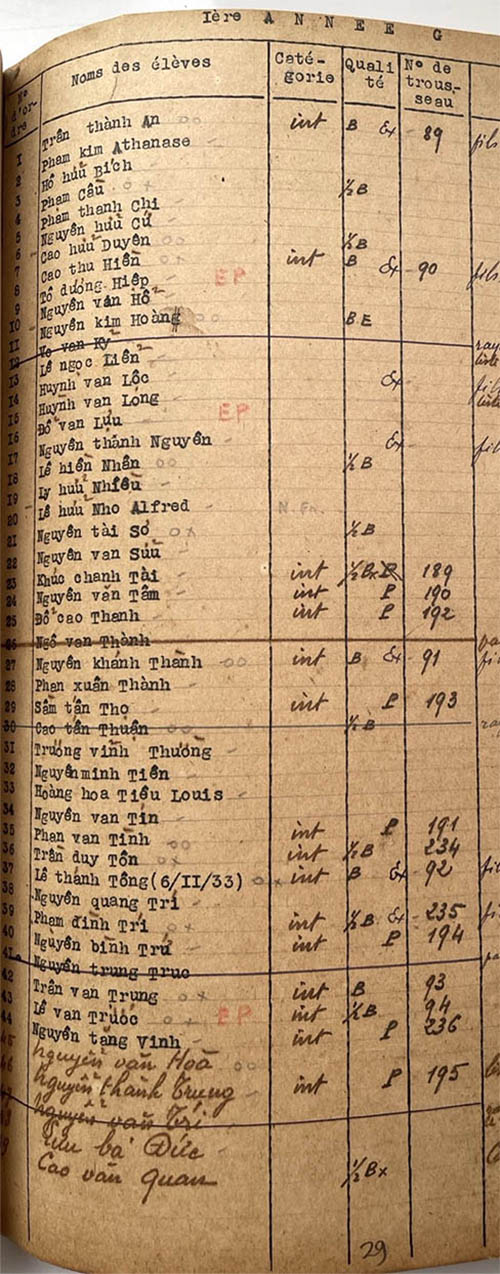 Ière ANNEE G
N° d'or-dre Noms des élèves Caté-gorie Quali té N° de trous-seau
1 Trần thành An oo int B Ex - 89 fils
2 Phạm kim Athanase
3 Hồ hửu Bích
4 Phạm Cầu ox ½B
5 Phạm thanh Chi
6 Nguyễn hửu Cứ
7 Cao hửu Duyên oo ½B
8 Cao thu Hiền oo int B Ex - 90 fils
9 Tô dương Hiệp EP
10 Nguyễn văn Hổ
11 Nguyễn kim Hoàng BE
12 Vo van Kỷ
13 Lê ngọc Liễn
14 Huỳnh van Lộc Ex
15 Huỳnh van Long
16 Đổ van Lựu EP
17 Nguyễn thành Nguyên Ex
18 Lê hiền Nhân oo ½B
19 Ly hửu Nhiều
20 Lê hửu Nho Alfred N.Fn.
21 Nguyễn tài Sơ ox ½B
22 Nguyễn van Sửu
23 Khúc chanh Tài int ½Bx B 189
24 Nguyễn văn Tâm int P 190
25 Đổ cao Thanh int P 192
26 Ngô van Thành
27 Nguyễn khánh Thành oo int B Ex - 91
28 Phan xuân Thành
29 Sầm tấn Thọ int P 193
30 Cao tấn Thuận oo ½B
31 Trương vỉnh Thường
32 Nguyễnminh Tiên
33 Hoàng hoa Tiểu Louis
34 Nguyễn van Tin
35 Phan van Tình oo int P 191
36 Trần duy Tôn ox int ½B 234
37 Lê thành Tông(6/II/33) ox int B Ex - 92
38 Nguyễn quang Tri
39 Phạm đình Trí ox int ½B Ex - 235
40 Nguyễn bỉnh Trứ int P 194
41 Nguyễn trung Truc
42 Trần van Trung ox int B 93
43 Lê van Trước ox EP int ½B 94
44 Nguyễn tăng Vinh int P 236
45 Nguyễn văn Hoà oo
46 Nguyễn thành Trung int P 195
47 Nguyễn văn Trí
48 bá Đức
49 Cao văn Quan ½Bx
29